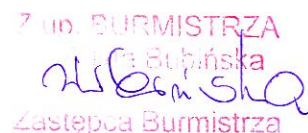 Z up. BURMISTRZA
Bubińska
Zastępca Burmistrza